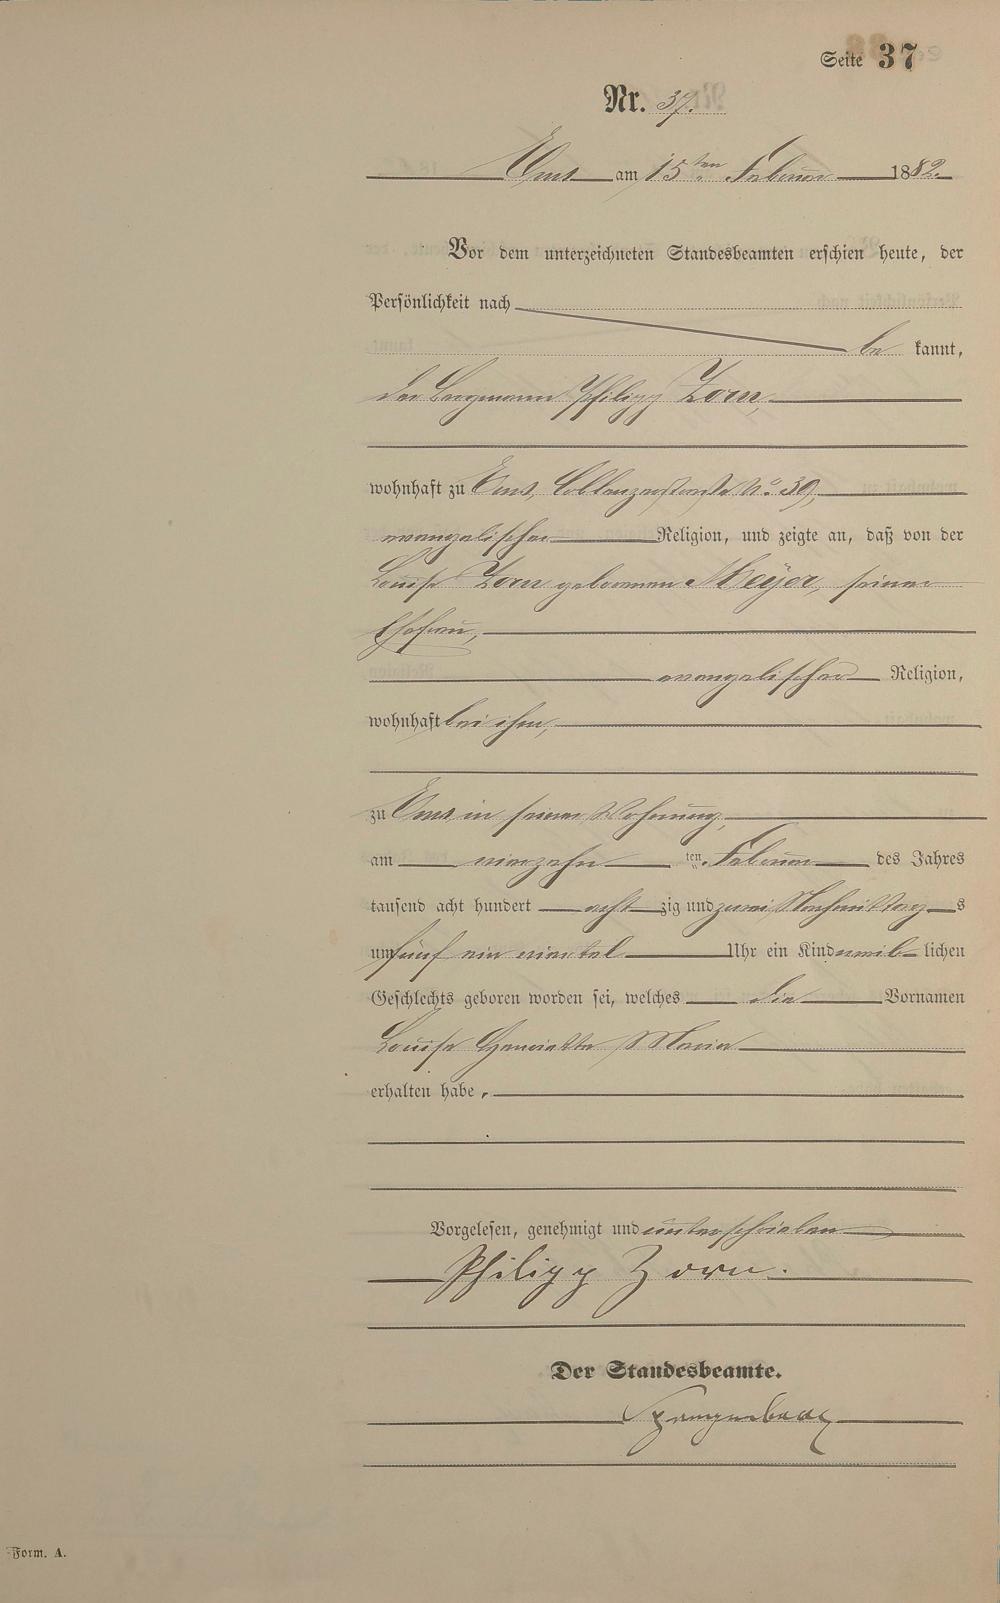 Seite 37
Nr. 37.
Ems am 15ten Februar 1882.
Vor dem unterzeichneten Standesbeamten erschien heute, der
Persönlichkeit nach
be kannt,
der Bergmann Philipp Zorn,
wohnhaft zu Ems, Coblenzerstraße No. 39,
evangelischer Religion, und zeigte an, daß von der
Louise Zorn geborenen Meyer, seiner
Ehefrau,
evangelischer Religion,
wohnhaft bei ihm,
zu Ems in seiner Wohnung,
am vierzehn ten Februar des Jahres
tausend acht hundert acht zig und zwei Nachmittag s
um fünf ein viertel Uhr ein Kind weib lichen
Geschlechts geboren worden sei, welches die Vornamen
Louise Henriette Maria
erhalten habe.
Vorgelesen, genehmigt und unterschrieben
Philipp Zorn.
Der Standesbeamte.
Form. A.